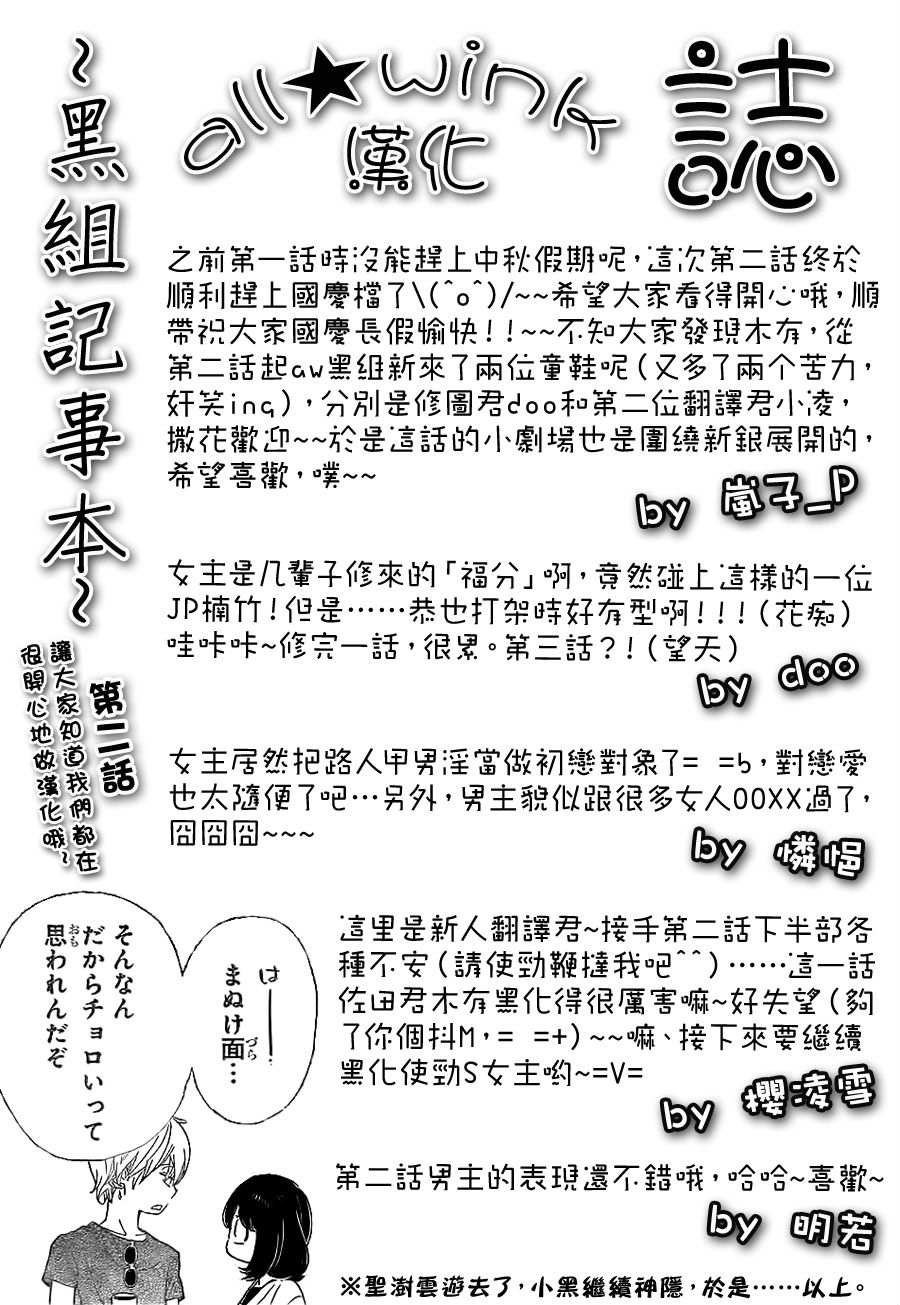 all★wink
漢化
誌
~黑組記事本~
第二話
讓大家知道我們都在
很開心地做漢化哦~
之前第一話時沒能趕上中秋假期呢,這次第二話終於
順利趕上國慶檔了\(^o^)/~~希望大家看得開心哦,順
帶祝大家國慶長假愉快!!~~不知大家發現木有,從
第二話起aw黑组新來了兩位童鞋呢(又多了兩个苦力,
奸笑ing),分別是修圖君doo和第二位翻譯君小凌,
撒花歡迎~~於是這話的小劇場也是圍繞新銀展開的,
希望喜歡,噗~~
by 嵐子_P
女主是几輩子修來的「福分」啊,竟然碰上這樣的一位
JP楠竹!但是……恭也打架時好有型啊!!!(花痴)
哇咔咔~修完一話,很累。第三話?!(望天)
by doo
女主居然把路人甲男淫當做初戀對象了= =b,對戀愛
也太隨便了吧…另外,男主貌似跟很多女人OOXX過了,
囧囧囧~~~
by 憐悒
這里是新人翻譯君~接手第二話下半部各
種不安(請使勁鞭撻我吧^^)……這一話
佐田君木有黑化得很厲害嘛~好失望(夠
了你個抖M,= =+)~~嘛、接下來要繼續
黑化使勁S女主喲~=V=
by 櫻凌雪
第二話男主的表現還不錯哦,哈哈~喜歡~
by 明若
※聖澍雲遊去了,小黑繼續神隱,於是……以上。
は───!
まぬけ面…
づら
そんなん
だからチョロいって
思われんだぞ
おも